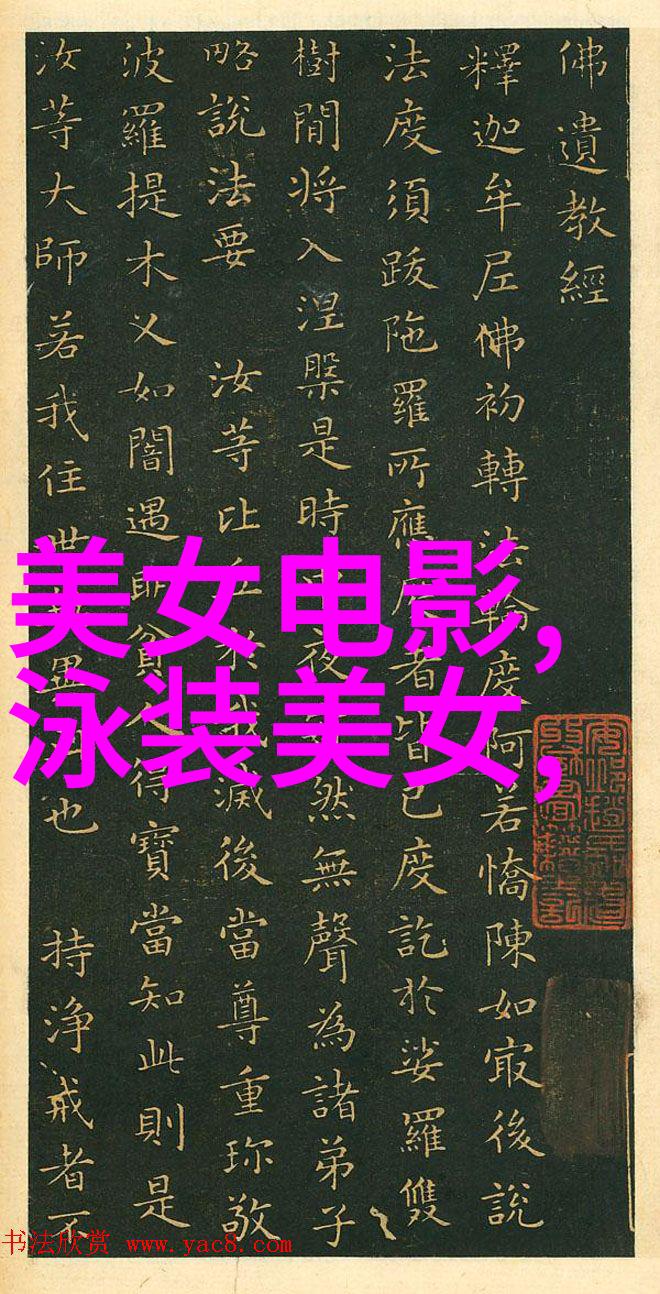 佛遺教經
釋迦牟尼佛初轉法輪度阿若憍陳如寂後說
法度須跋陁羅所應度者皆已度訖於娑羅雙
樹間將入涅槃是時中夜然無聲為諸弟子
略說法要 汝等比丘於我滅後當尊重珎敬
波羅提木义如闇遇明貧人得寶當知此則是
汝等大師若我住世無異此也 持净戒者不
美女电影,
泳装美女,
书法欣赏 www.yac8.com